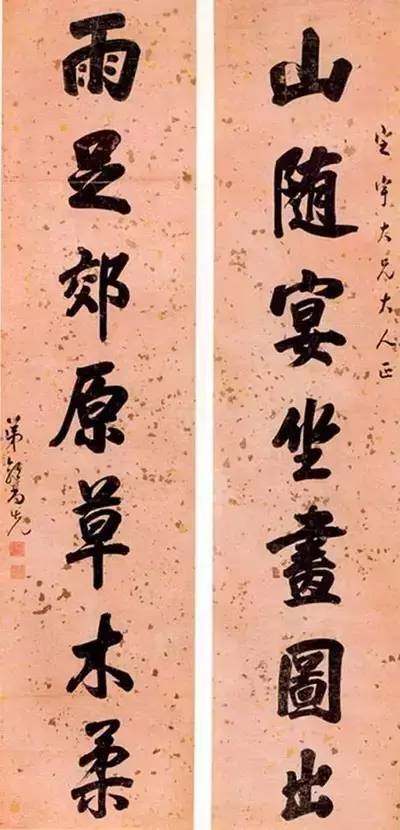 山随宴坐畫圖出
宇大兄大人正
雨足郊原草木柔
弟郭尚先